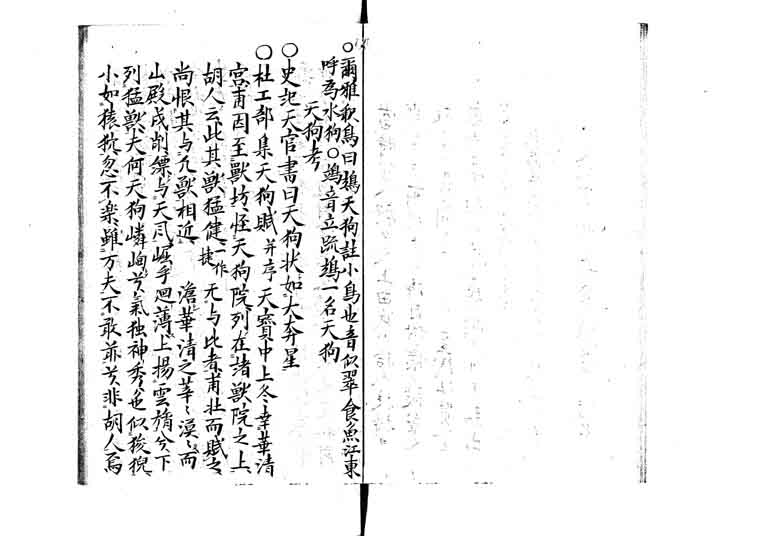 ○爾雅釈鳥曰鴗天狗註小鳥也音似翠食魚江東
呼為水狗○鴗音立䟽鴗一名天狗
天狗考
○史記天官書曰天狗状如大奔星
○杜工部集天狗賦 并序 天寳中上冬幸華清
宮甫因至獣坊怪天狗院列在諸獣院之上
胡人云此其獣猛健 一作捷 无与比者甫壮而賦之
尚恨其与凡獣相近 澹華清之莘々漠々而
山殿戌削縹与天風崛乎廻薄上揚雲旓兮下
列猛獣夫何天狗嶙峋兮氣独神秀色似狻猊
小如猿狖忽不楽雖万夫不敢前兮非胡人焉